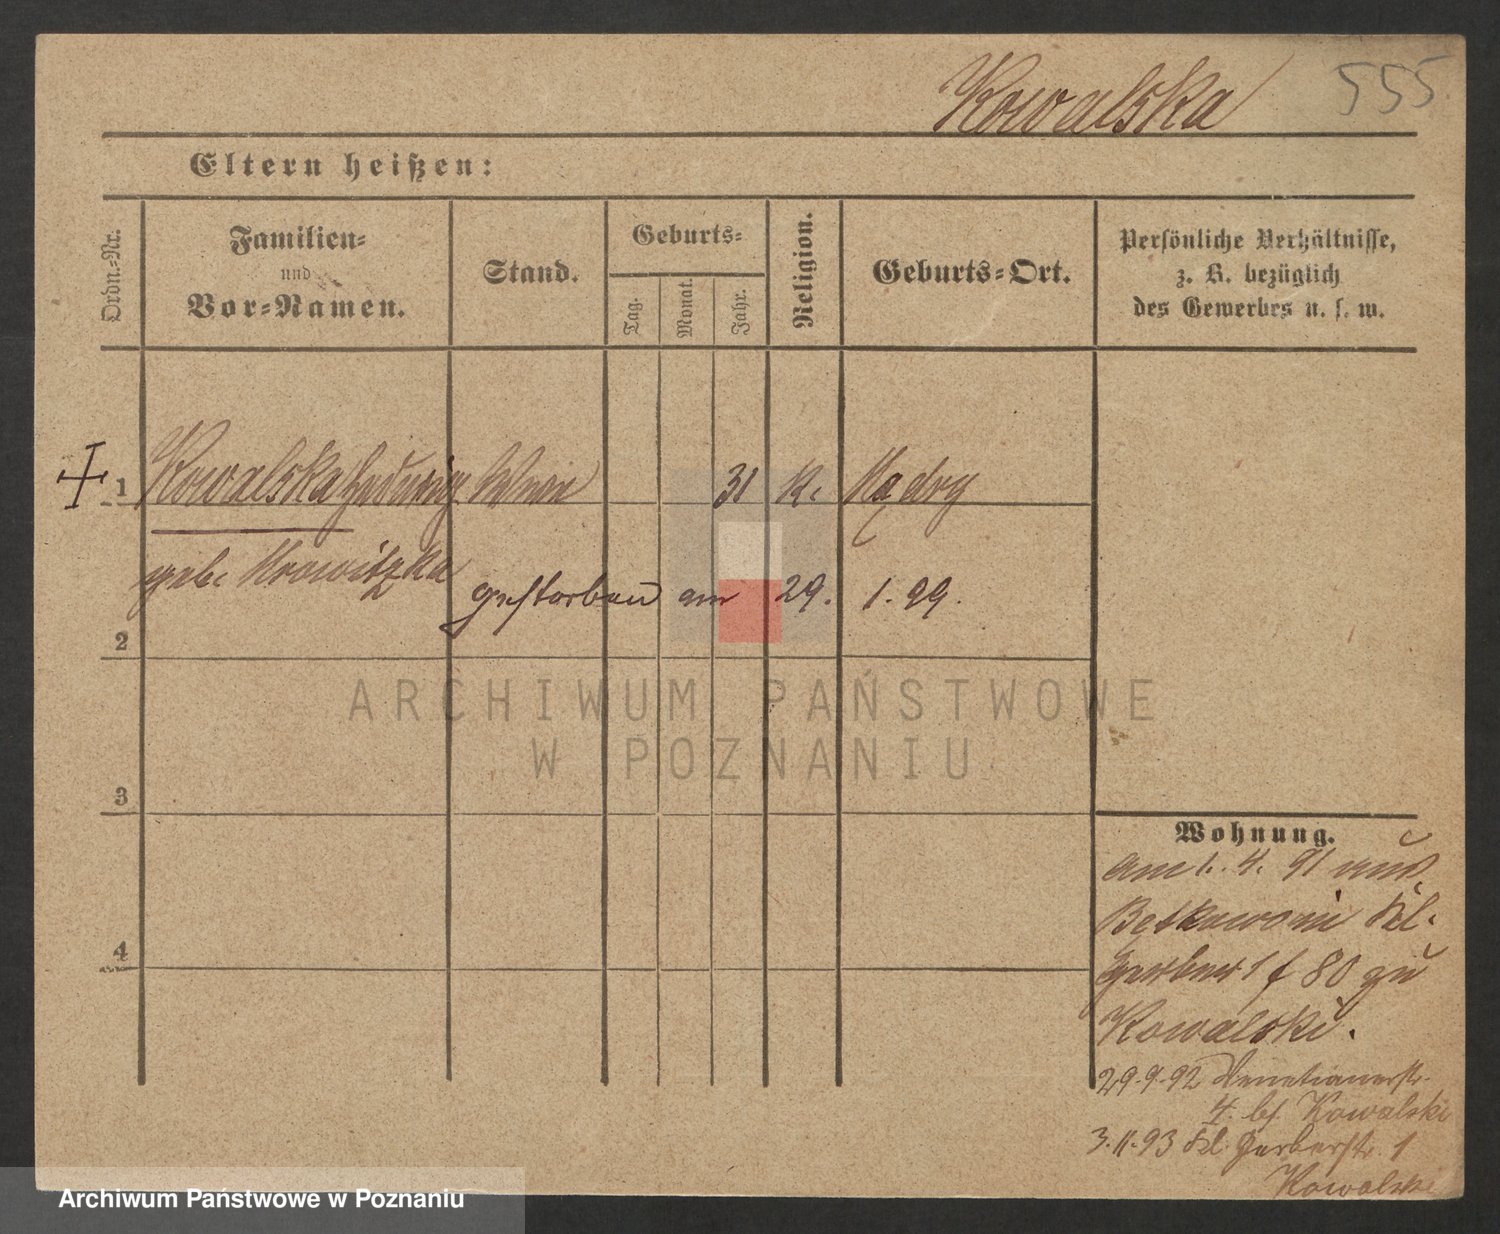 Kowalska
555
Eltern heißen:
Ordn.-Nr.
Familien-
und
Vor-Namen.
Stand.
Geburts-
Tag.
Monat.
Jahr.
Religion.
Geburts-Ort.
Persönliche Verhältnisse,
z. B. bezüglich
des Gewerbes u. s. w.
1 Kowalska Hedwig 31 k. Mądry
geb. Mrowitzka
gestorben am 29. 1. 99.
2
3
4
Wohnung.
am 1. 4. 91 aus
Kl.
80 zu
Kowalski.
29.9.92 Venetianerstr.
4. bei Kowalski
3.11.93 Kl. Gerberstr. 1
Kowalski
ARCHIWUM PAŃSTWOWE
W POZNANIU
Archiwum Państwowe w Poznaniu